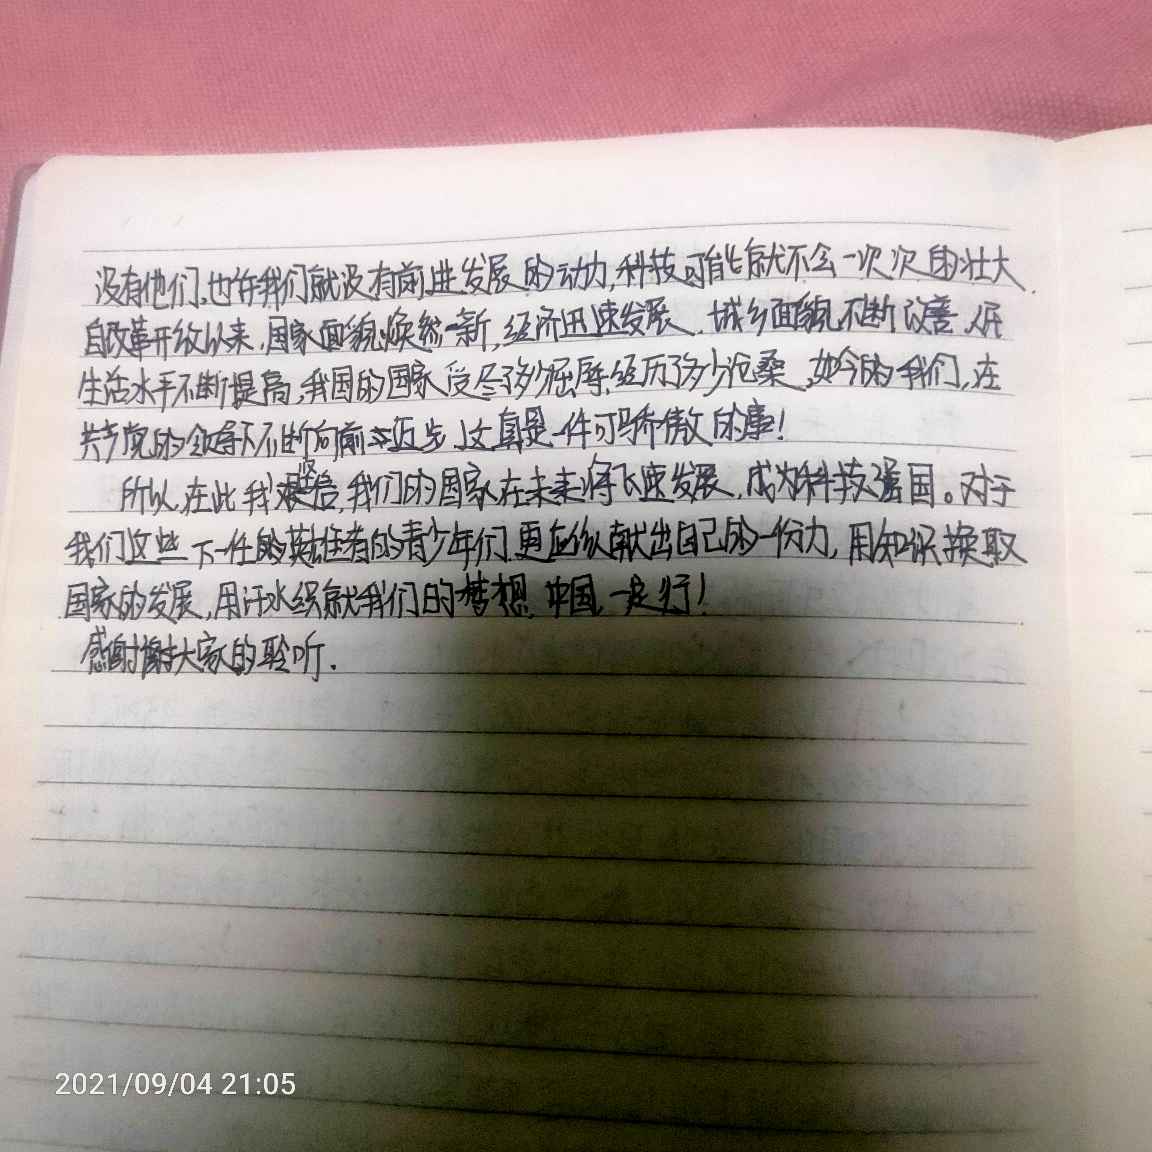 没有他们,也许我们就没有前进发展的动力,科技可能就不会一次次的壮大.
自改革开放以来,国家面貌焕然一新,经济迅速发展,城乡面貌不断改善,人民
生活水平不断提高,我国的国家受尽多少屈辱,经历多少沧桑,如今的我们,在
共产党的领导下不断向前迈步,这真是一件可骄傲的事!
所以,在此我坚信,我们的国家在未来将飞速发展,成为科技强国。对于
我们这些下一任的英雄者的青少年们,更应纵献出自己的一份力,用知识换取
国家的发展,用汗水织就我们的梦想,中国,一定行!
感谢大家的聆听.
2021/09/04 21:05